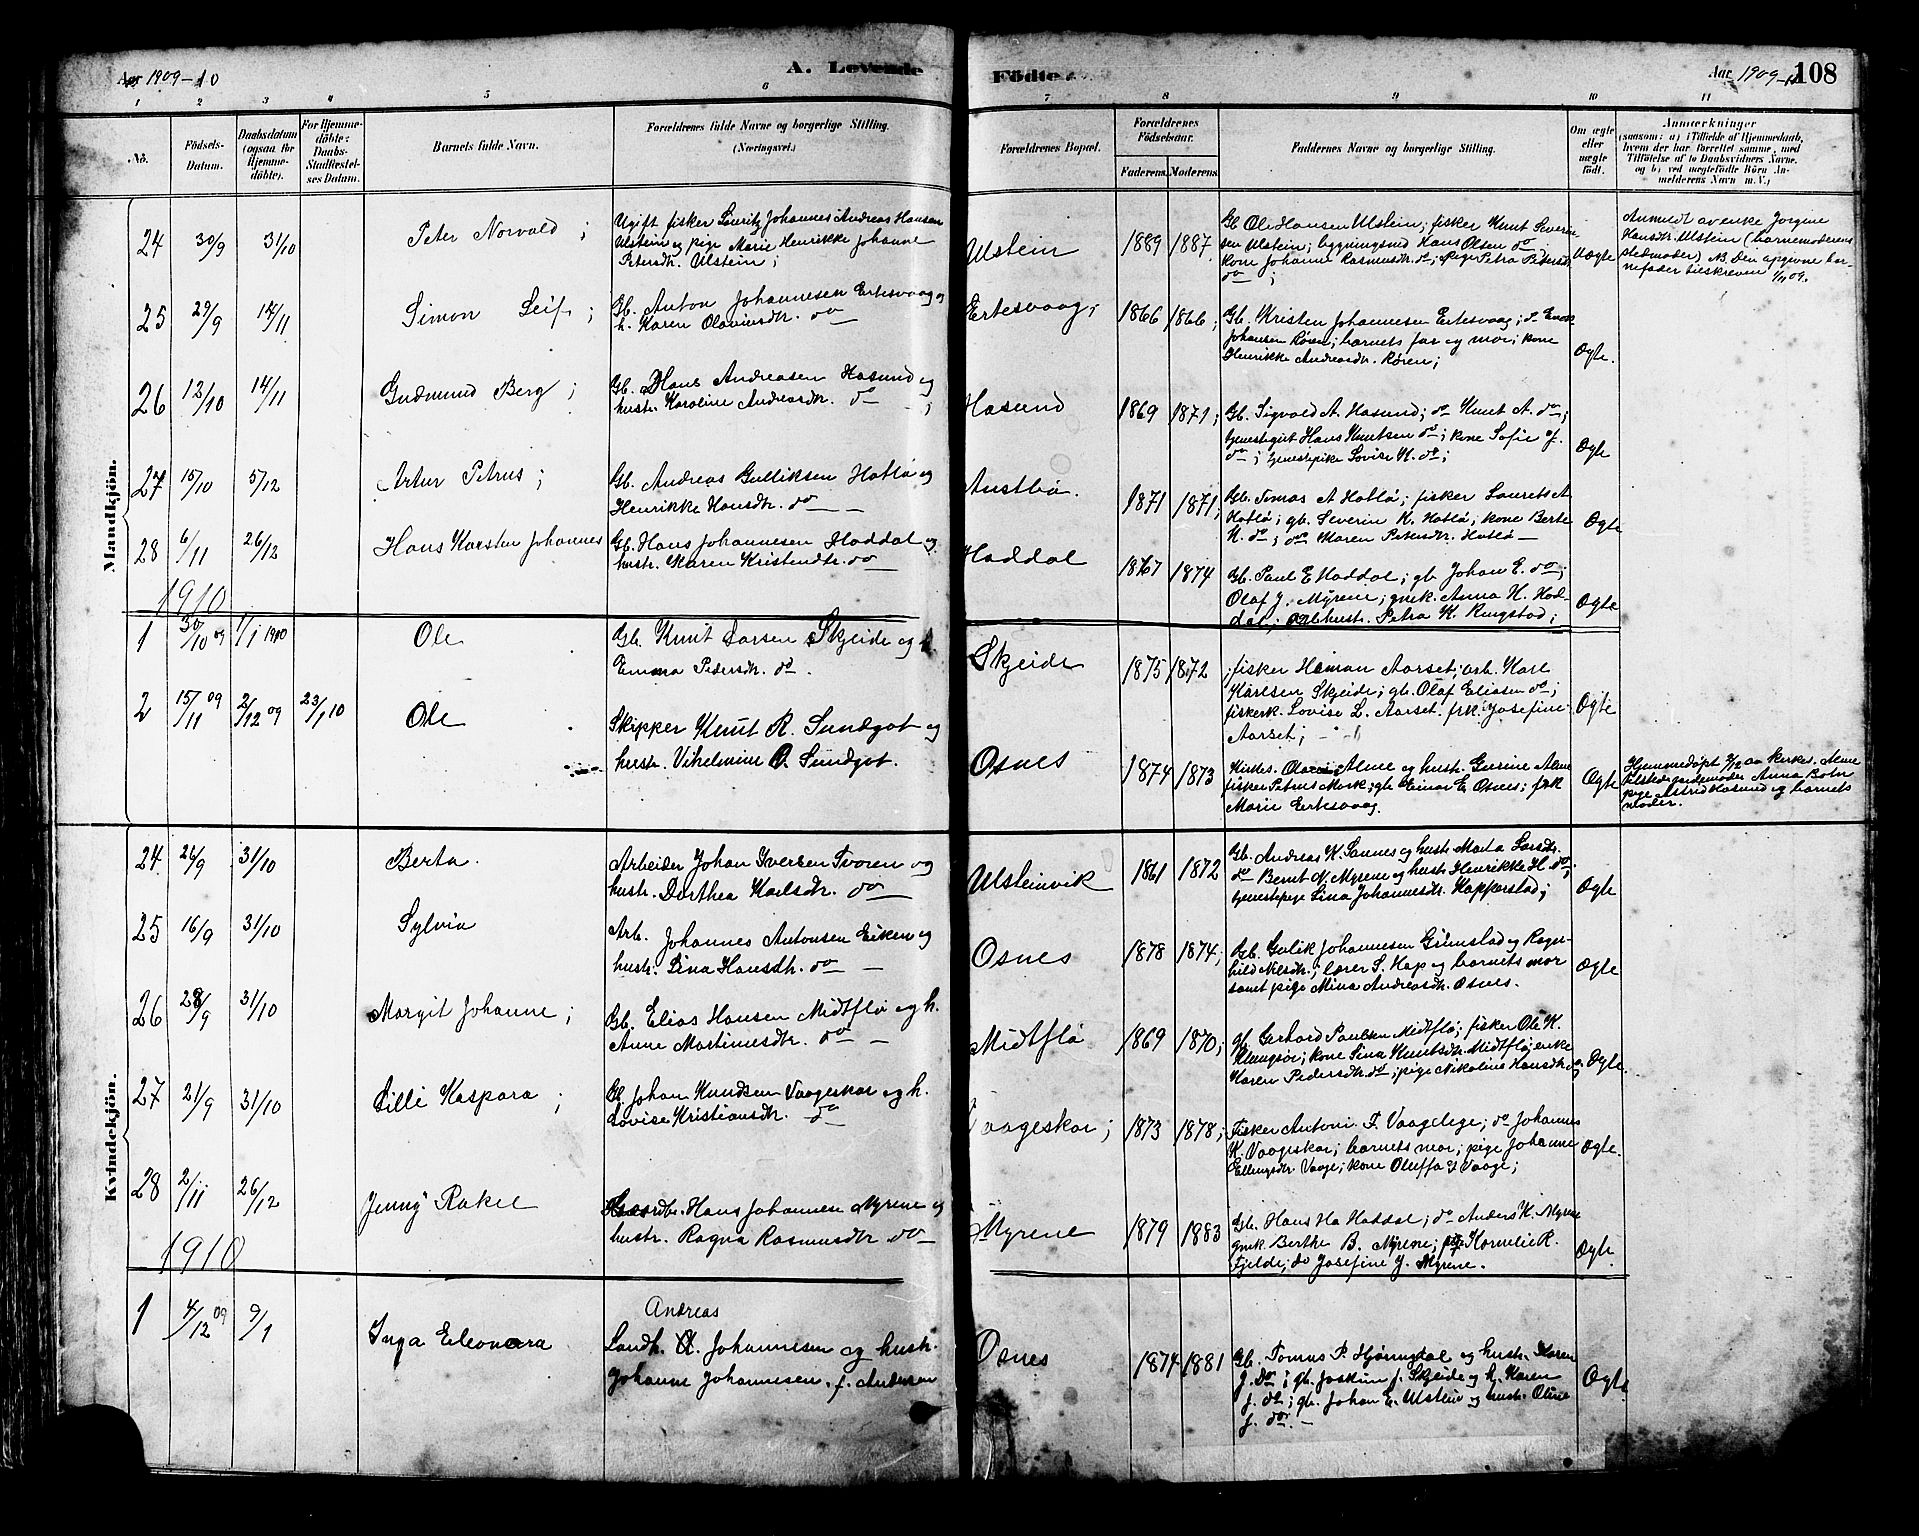 Aar 1909-10
A. Levende
Födte.
Aar 1909-10
108
1 2 3 4 5 6 7 8 9 10 11
No.
Födsels-
Datum.
Daabsdatum
(ogsaa for
Hjemme-
döbte).
For Hjemme-
döbte:
Daabs-
Stadfæstel-
ses Datum.
Barnets fulde Navn.
Forældrenes fulde Navne og borgerlige Stilling.
(Næringsvei.)
Forældrenes Bopæl.
Forældrenes
Födselsaar.
Faderens. Moderens.
Faddernes Navne og borgerlige Stilling.
Om ægte
eller
uægte
født.
Anmærkninger
(saasom: a) i Tilfælde af Hjemmedaab,
hvem der har forrettet samme, med
Tilföielse af to Daabsvidners Navne.
og b) ved uægtefödte Börn An-
melderens Navn m. V.)
Mandkjön.
24 30/9 31/10 Peter Norvald;
Ugift fisker Lauritz Johannes Andreas Hansen
Ulstein og pige Marie Henrikke Johanne
Petersdtr. Ulstein;
Ulstein 1889 1887.
Gb. Ole Hansen Ulstein; fisker Knut Severin-
sen Ulstein; bygningsmd Hans Olsen do
kone Johanne Rasmusdtr. do; pige Petra Pedersdtr
do;
Uægte
Anmeldt av enke Jorgine
Hansdtr. Ulstein (barnemoderens
stedmoder) NB. Den opgivne bar-
nefader tilskreven 1/11 09.
25 29/9 14/11 Simon Leif;
Gb. Anton Johannesen Ertesvaag og
h. Karen Olaviusdtr. do
Ertesvaag; 1866 1866;
Gb. Kristen Johannesen Ertesvaag; do
Johansen Røren; barnets far og mor; kone
Henrikke Andreasdtr. Røren;
Ægte.
26 12/10 14/11 Gudmund Berg;
Gb. Hans Andreasen Hasund og
hustr. Karoline Andreasdtr. do;
Hasund 1869 1871;
Gb. Sigvald A. Hasund; do Knut A. do;
tjenestegut Hans Knutsen do; kone Sofie J.
do; tjenestepike Lovise K. do;
Ægte
27 15/10 5/12 Artur Petrus;
Gb. Andreas Gulliksen Hatlø og
Henrikke Hansdtr. do
Austbø. 1871 1871;
Gb. Tomas A Hatlø; fisker Laurits A
Hatlø; gb. Severin K. Hatlø; kone Berte
K. do; do Maren Petersdtr. Hatlø
Ægte
28 6/11 26/12 Hans Karsten Johannes
Gb. Hans Johannesen Haddal og
hustr. Karen Kristensdtr. do
Haddal 1867 1874
Gb. Paul E Haddal; gb Johan E. do;
Olaf J. Myrene; gmk. Anna H. Had-
dal; hustr. Petra K. Ringstad;
Ægte
1910
1 30/10 09 1/1 1910 Ole
Gb. Knut Larsen Skjeide og h.
Emma Pedersdtr. do.
Skjeide 1875 1872
fisker Herman Aarset; arb. Karl
Karlsen Skjeide; gb. Olaf Eliasen do;
fiskerk. Lovise L. Aarset. frk. Josefine
Aarset;
Ægte
2 15/11 09 2/12 09 23/1 10 Ole
Skipper Knut R. Sundgot og
hustr. Vilhelmine O. Sundgot.
Osnes 1874 1873
Alme og hustr. Gurine Alme
fisker Petrus Mork; gb Einar E. Osnes; frk
Marie Ertesvaag.
Ægte
Hjemmedøpt 2/12 av kirkes. Alme
tilstede Anna Botn
pige Astrid Hasund og barnets
moder.
Kvindekjön.
24. 26/9 31/10 Berta.
Arbeider Johan Iversen Tvoren og
hustr. Dorthea Karlsdtr. do
Ulsteinvik 1861 1872
Gb. Andreas K. Sannes og hustr Marta Larsdtr.
do Bernt N. Myrene og hustr Henrikke H. do;
tjenestepige Lina Johannesdtr. Kopperstad;
Ægte
25 16/9 31/10 Sylvia
Arb. Johannes Antonsen Eiken og
hustr. Lina Hansdtr. do
Osnes 1878 1874;
Gb. Gulik Johannesen Grimstad og Ragn-
hild Nilsdtr.; lærer S. Hap og barnets mor
samt pige Mina Andreasdtr. Osnes.
Ægte
26 28/9 31/10 Margit Johanne;
Gb. Elias Hansen Midtflø og h.
Anne Martinusdtr. do
Midtflø 1869 1870;
gb Gerhard Paulsen Midtflø; fisker Ole K.
Klungsør; kone Lina Knutsdtr. Midtflø; enke
Karen Pedersdtr. do; pige Nikoline Hansdtr. do
Ægte.
27 21/9 31/10 Lilli Kaspara;
Gb. Johan Knudsen Vaageskar og h.
Lovise Kristiansdtr. do
Vaageskar; 1873 1878;
Fisker Antoni T. Vaagelege; do Johannes
K. Vaageskar; barnets mor; pige Johanne
Ellingsdtr. Vaage; kone Oluffa Vaage;
Ægte.
28 2/11 26/12 Jenny Rakel
Gaardbr. Hans Johannesen Myrene og
hustr. Ragna Rasmusdtr do
Myrene 1879 1883
Gb. Hans Ha Haddal; do Anders K. Myrene
gmk. Berthe B. Myrene; pig. Kornelie R.
Fjelde; do Josefine J. Myrene.
Ægte.
1910
1 4/12 09 9/1 Inga Eleonora
Andreas
Landh. A. Johannesen og hustr.
Johanne Johannesen f. Andersen
Osnes 1874 1881
Gb. Tomas P. Hjørungdal og hustr. Karen
J. do; gb. Joakim J. Skjeide og h. Karen
J. do; gb. Johan E. Ulstein og hustr. Oline
J. do.
Ægte.